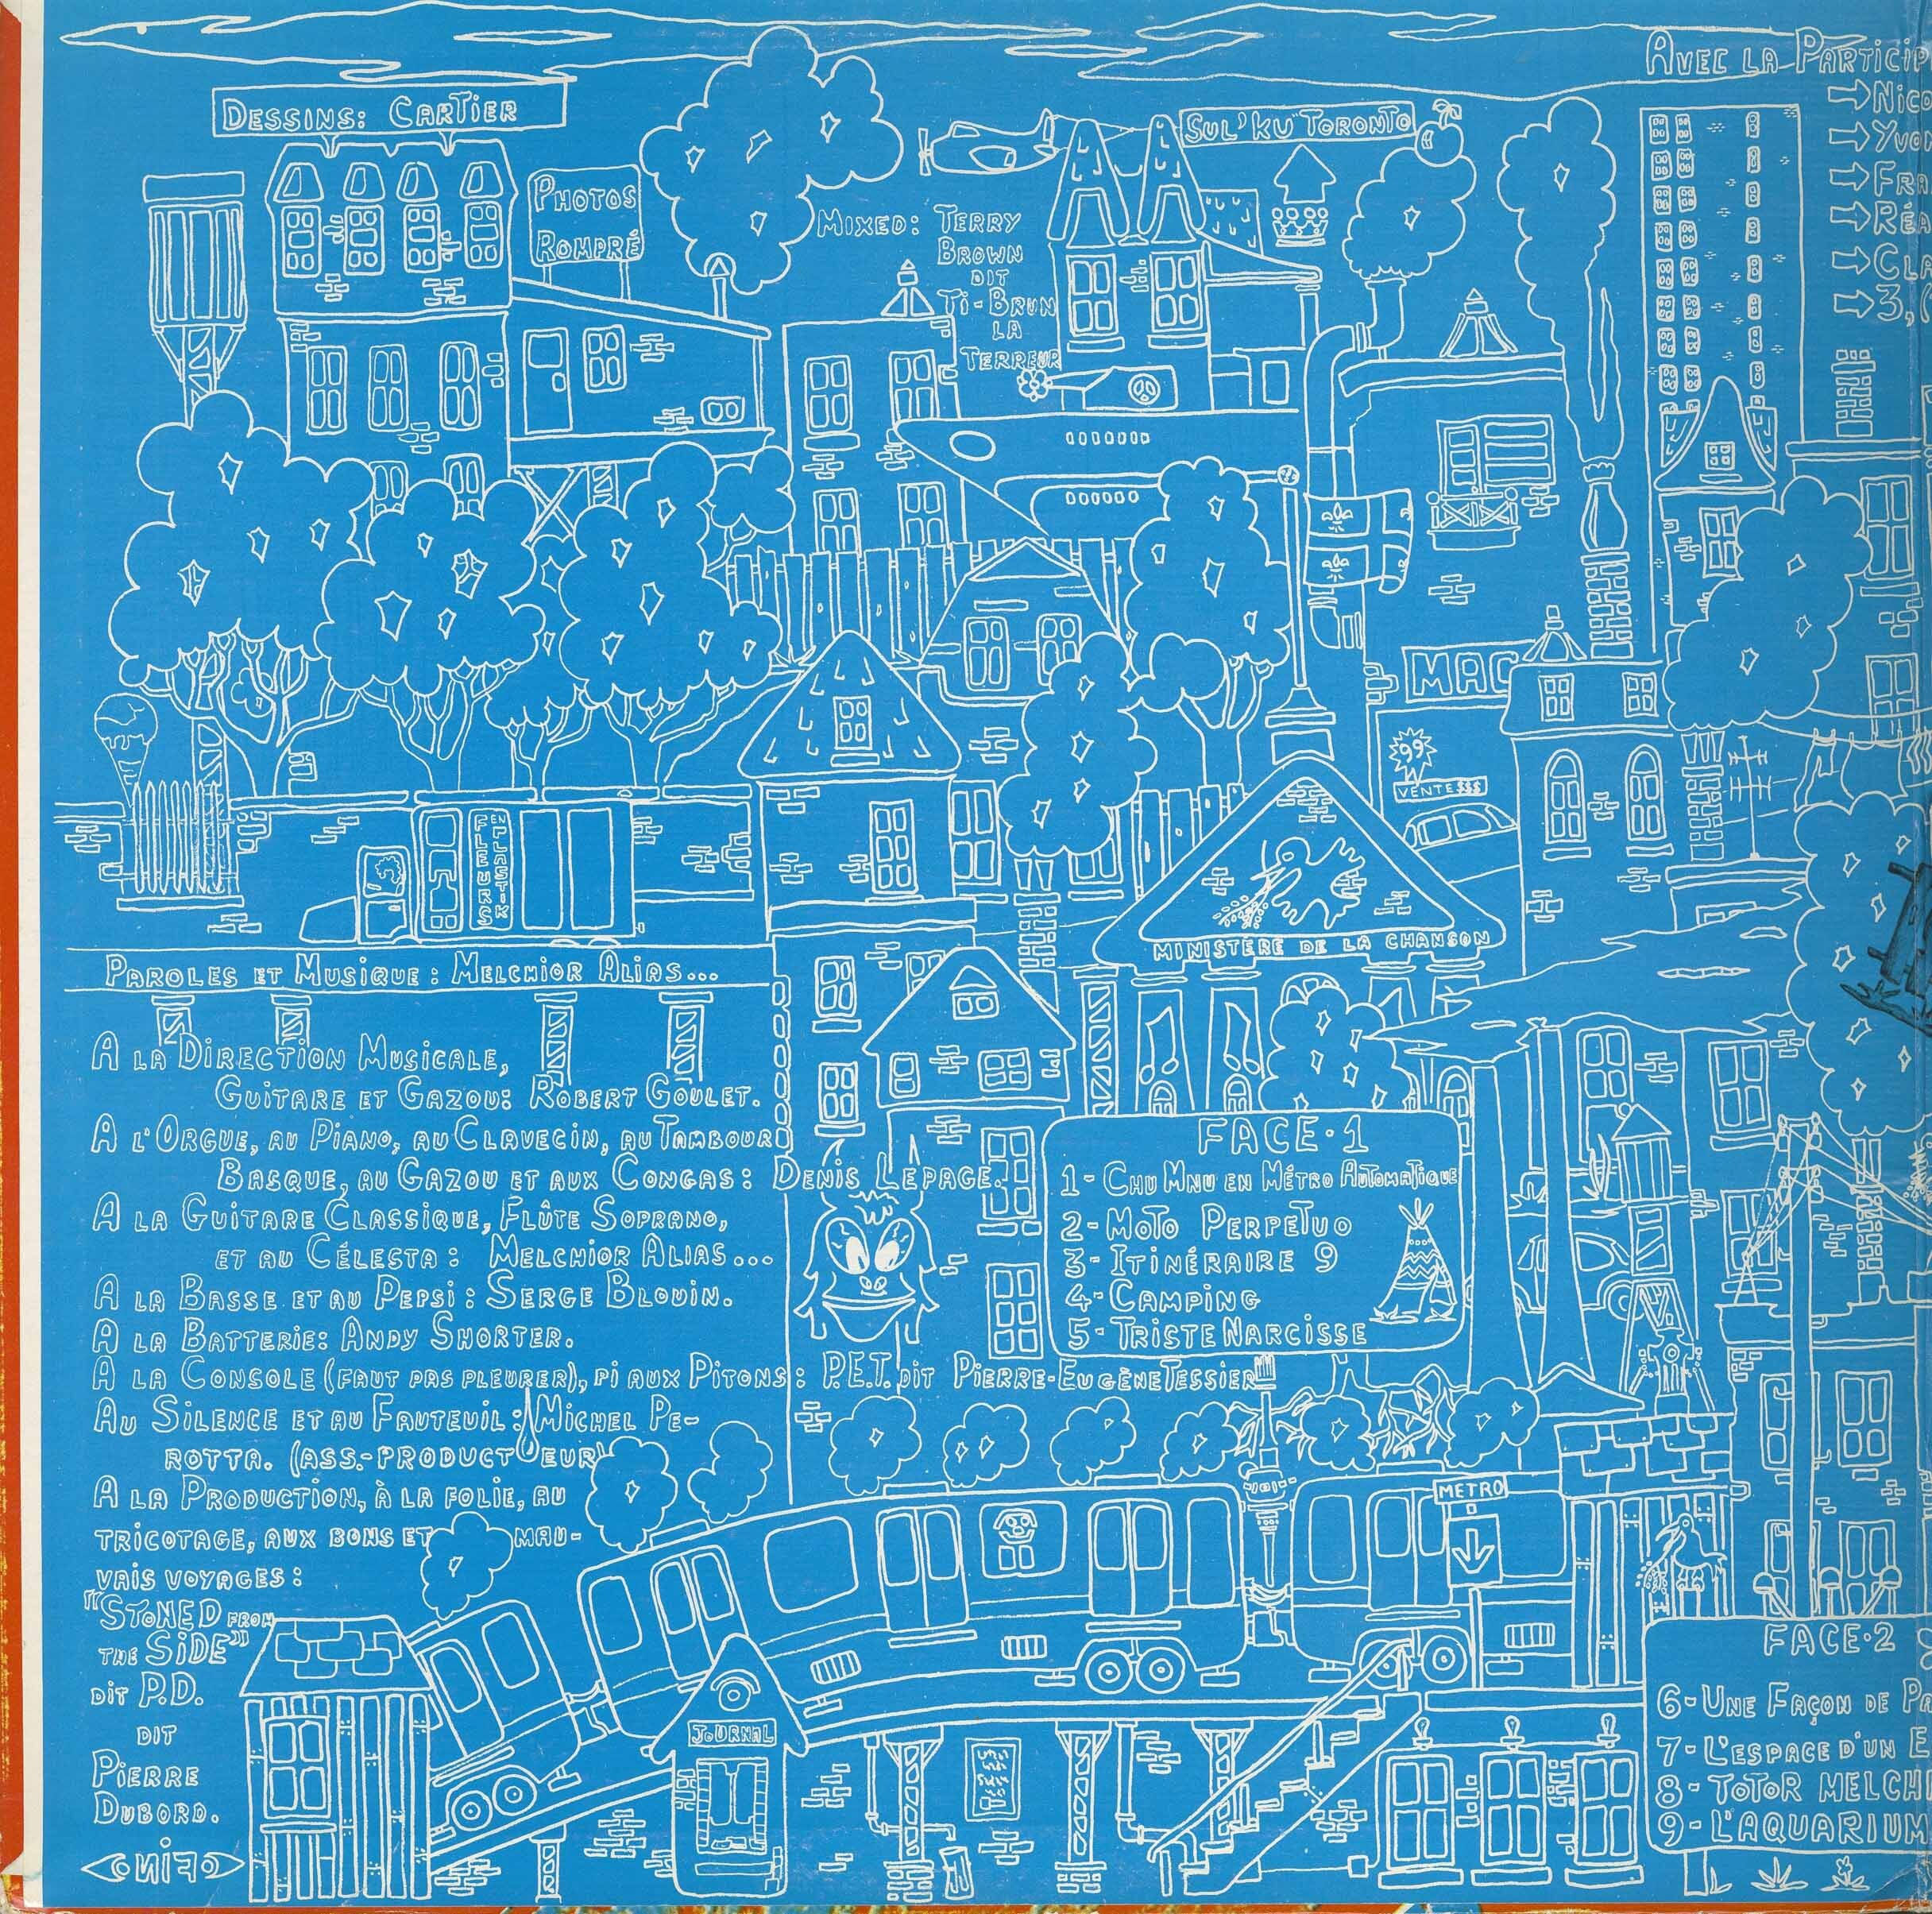 DESSINS: CARTIER
PHOTOS
ROMPRÉ
MIXED: TERRY
BROWN
DIT
TI-BRUN
LA
TERREUR
SUL'KU TORONTO
AVEC LA PARTICIP
NICO
YVO
FRA
RÉA
CLA
3,
MAG
99
VENTE $$$
FLEURS
EN PLASTIK
MINISTÈRE DE LA CHANSON
PAROLES ET MUSIQUE: MELCHIOR ALIAS...
A LA DIRECTION MUSICALE,
GUITARE ET GAZOU: ROBERT GOULET.
A L'ORGUE, AU PIANO, AU CLAVECIN, AU TAMBOUR
BASQUE, AU GAZOU ET AUX CONGAS: DENIS LEPAGE.
A LA GUITARE CLASSIQUE, FLÛTE SOPRANO,
ET AU CÉLESTA: MELCHIOR ALIAS...
A LA BASSE ET AU PEPSI: SERGE BLOUIN.
A LA BATTERIE: ANDY SHORTER.
A LA CONSOLE (FAUT PAS PLEURER), PI AUX PITONS: P.E.T. DIT PIERRE-EUGÈNE TESSIER
AU SILENCE ET AU FAUTEUIL: MICHEL PE-
ROTTA. (ASS.-PRODUCTEUR)
A LA PRODUCTION, À LA FOLIE, AU
TRICOTAGE, AUX BONS ET MAU-
VAIS VOYAGES:
"STONED FROM
THE SIDE"
DIT P.D.
DIT
PIERRE
DUBORD.
FIN
FACE·1
1- CHU MNU EN MÉTRO AUTOMATIQUE
2- MOTO PERPETUO
3- ITINÉRAIRE 9
4- CAMPING
5- TRISTE NARCISSE
METRO
JOURNAL
FACE·2
6- UNE FAÇON DE PA
7- L'ESPACE D'UN E
8- TOTOR MELCH
9- L'AQUARIUM